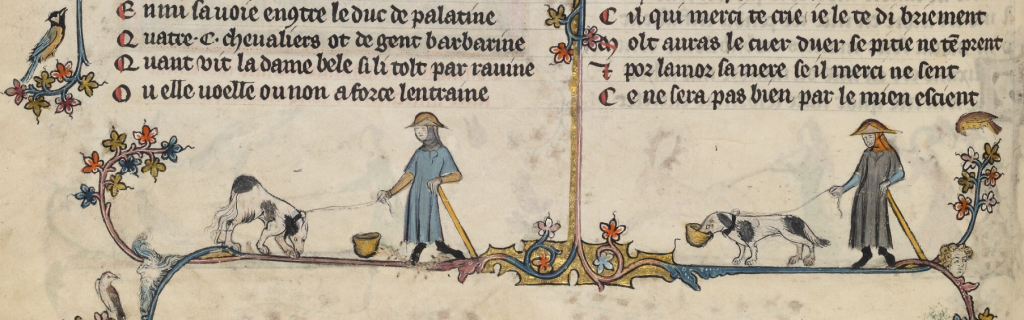 E nmi sa uoie engtre le duc de palatine
Q uatre · C · cheualiers ot de gent barbarine
Q uant uit la dame bele si li tolt par rauine
O u elle uoelle ou non a force lentraine
C il qui merci te crie ie le te di briement
olt auras le cuer duer se pitie ne tẽ prent
por lamor sa mere se il merci ne sent
C e ne sera pas bien par le mien escient